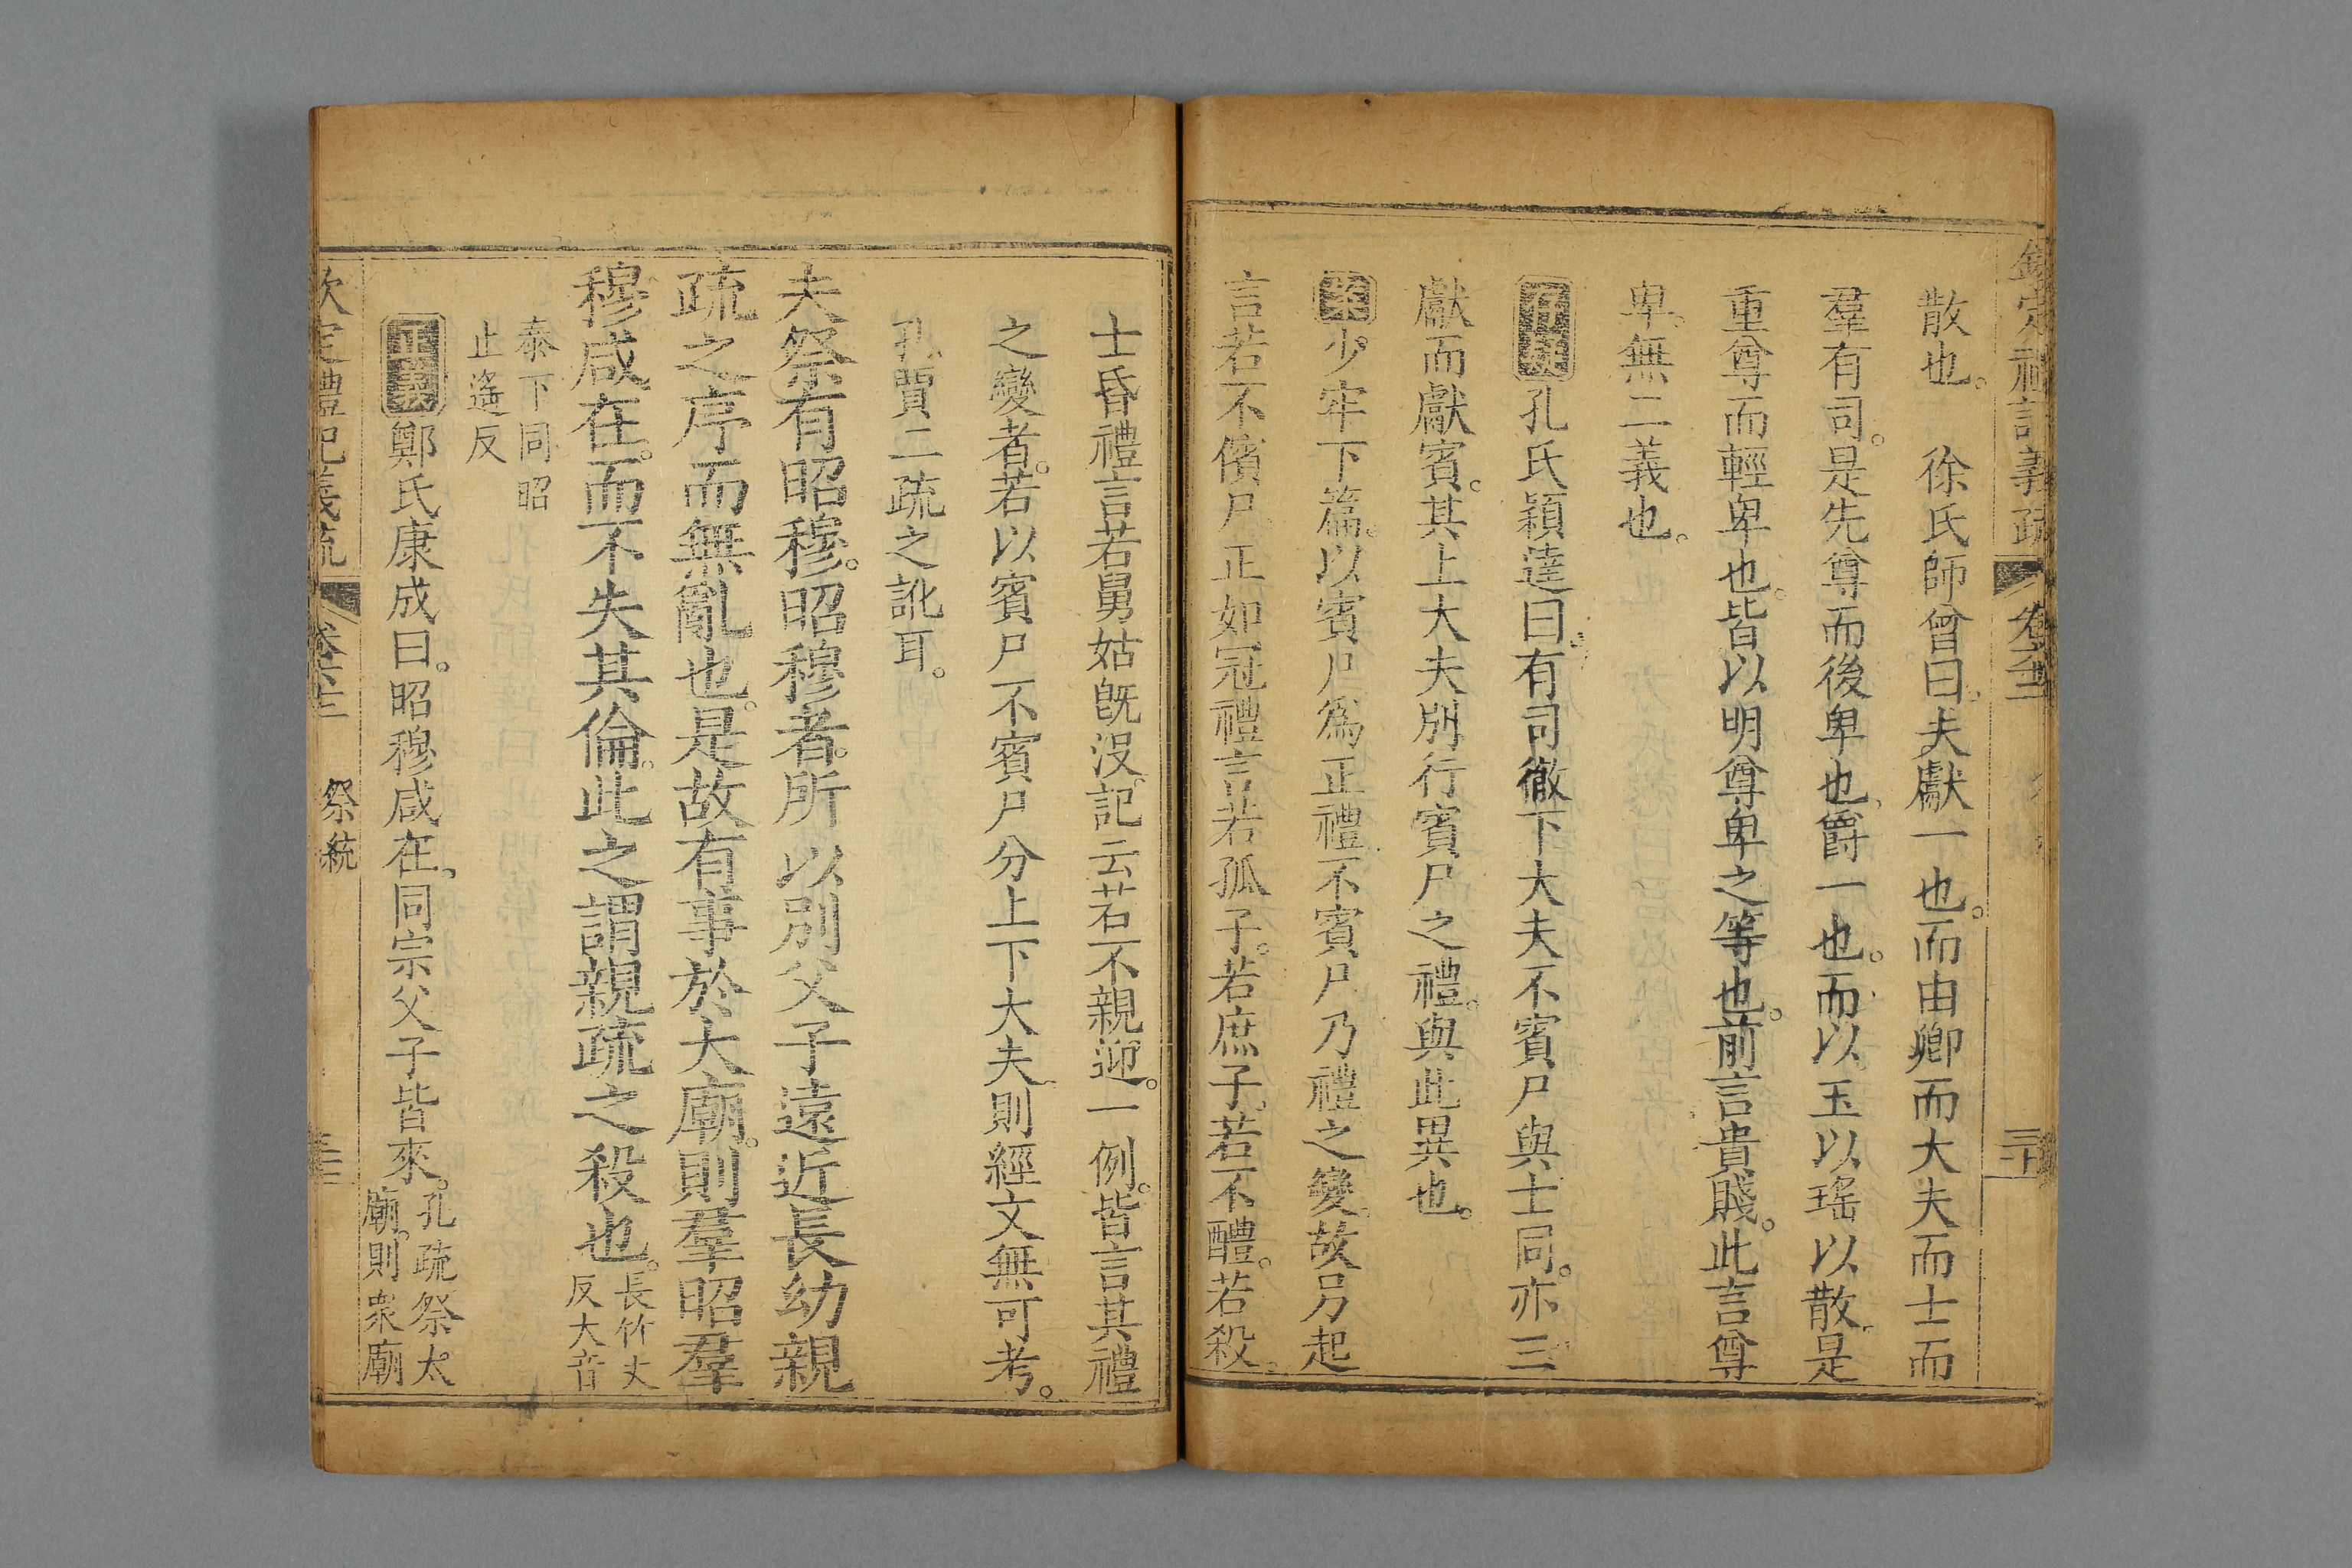 散也。　徐氏師曾曰。夫獻一也。而由卿而大夫而士而
羣有司。是先尊而後卑也。爵一也。而以玉以瑤以散。是
重尊而輕卑也。皆以明尊卑之等也。前言貴賤。此言尊
卑。無二義也。
孔氏穎達曰。有司徹下大夫不賓尸與士同。亦三
獻而獻賓。其上大夫別行賓尸之禮。與此異也。
少牢下篇。以賓尸爲正禮。不賓尸乃禮之變。故另起
言若不儐尸。正如冠禮言若孤子。若庶子。若不醴。若殺。
士昏禮言若舅姑旣沒。記云若不親迎。一例。皆言其禮
之變者。若以賓尸不賓尸分上下大夫。則經文無可考。
孔賈二疏之訛耳。
夫祭有昭穆。昭穆者。所以別父子遠近長幼親
疏之序而無亂也。是故有事於大廟。則羣昭羣
穆咸在。而不失其倫。此之謂親疏之殺也。長竹丈
反大音
泰下同昭
止遙反
鄭氏康成曰。昭穆咸在。同宗父子皆來。孔疏祭太
廟。則衆廟
欽定禮記義疏
祭統